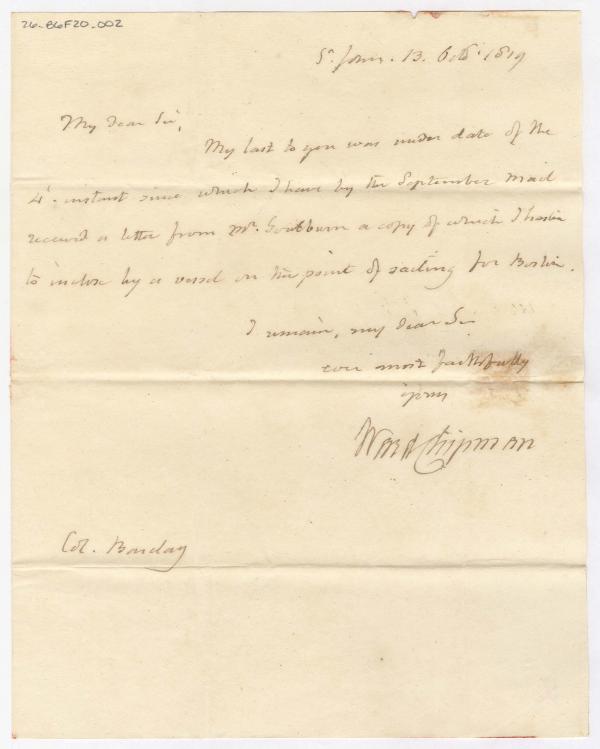 26-B6F20-002
St. John. 13. Octr. 1819
My dear Sir,
My last to you was under date of the
4th. instant since which I have by the September mail
received a letter from Mr. Goulburn a copy of which I hasten
to inclose by a vessel on the point of sailing for Boston.
I remain, my dear Sir
ever most faithfully
yours
Ward Chipman
Col. Barclay